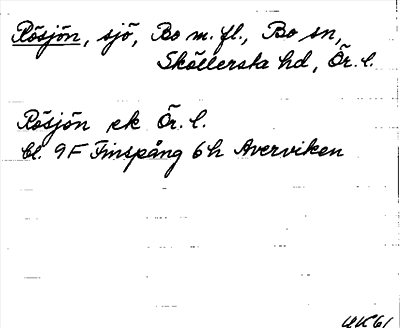 Rösjön, sjö, Bo m. fl., Bo sn,
Sköllersta hd, Ör. l.
Rösjön ek Ör. l.
bl. 9F Finspång 6h Averviken
UK 61